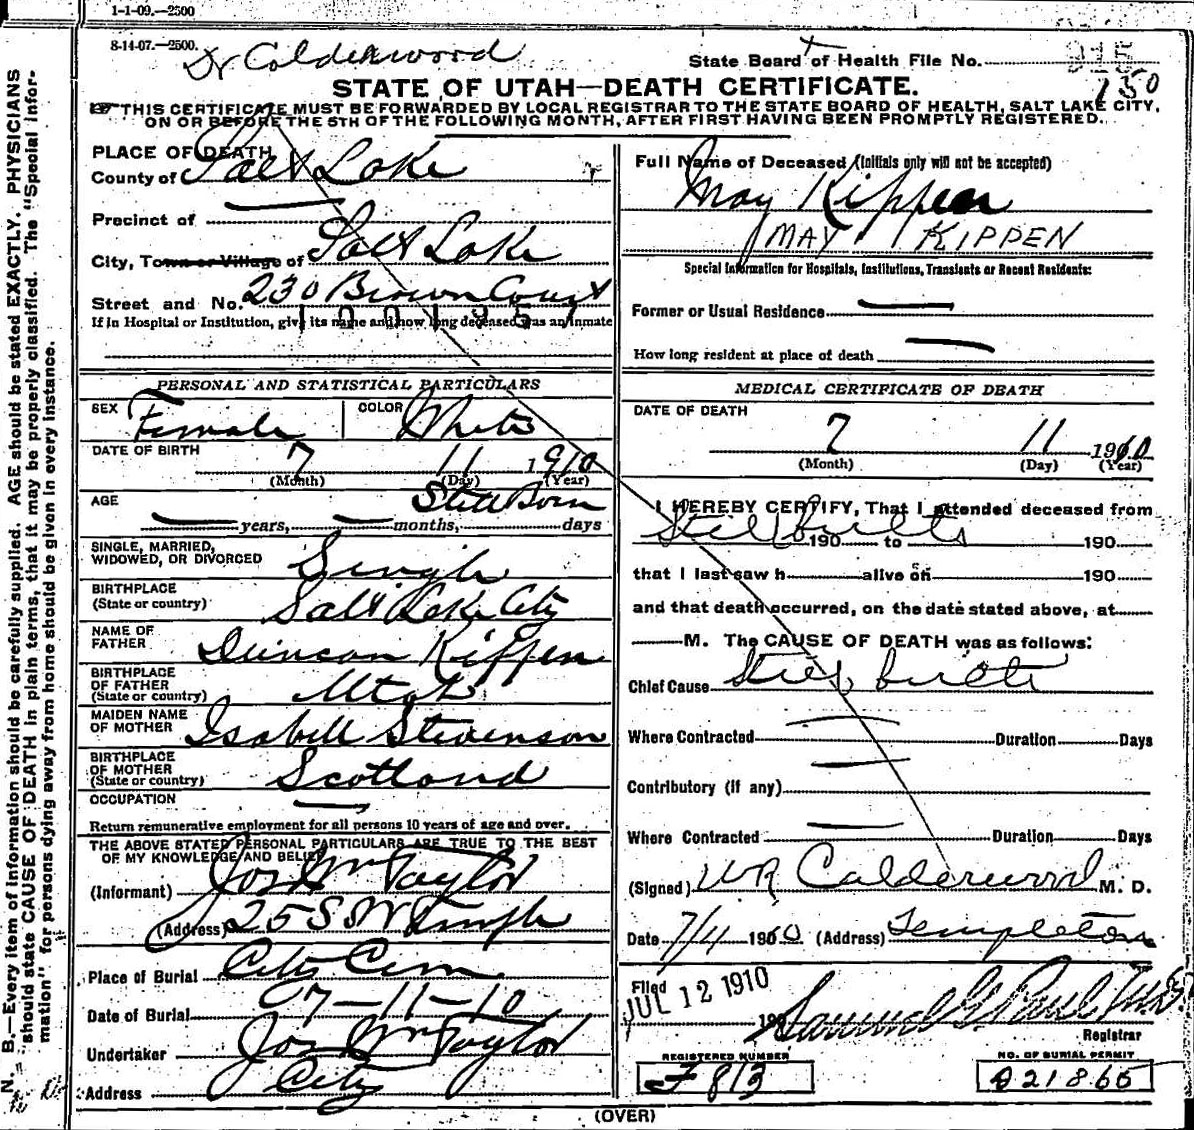 1-1-09.—2500
8-14-07.—2500.
Dr Calderwood
State Board of Health File No. 215
750
STATE OF UTAH—DEATH CERTIFICATE.
THIS CERTIFICATE MUST BE FORWARDED BY LOCAL REGISTRAR TO THE STATE BOARD OF HEALTH, SALT LAKE CITY,
ON OR BEFORE THE 5TH OF THE FOLLOWING MONTH, AFTER FIRST HAVING BEEN PROMPTLY REGISTERED.
N. B.—Every item of information should be carefully supplied. AGE should be stated EXACTLY. PHYSICIANS
should state CAUSE OF DEATH in plain terms, that it may be properly classified. The "Special Infor-
mation" for persons dying away from home should be given in every instance.
PLACE OF DEATH
County of Salt Lake
Precinct of
City, Town or Village of Salt Lake
Street and No. 230 Brown Court
1001957
If in Hospital or Institution, give its name and how long deceased was an inmate
PERSONAL AND STATISTICAL PARTICULARS
SEX Female COLOR White
DATE OF BIRTH 7 11 1910
(Month) (Day) (Year)
AGE Still Born
years, months, days
SINGLE, MARRIED,
WIDOWED, OR DIVORCED Single
BIRTHPLACE
(State or country) Salt Lake City
NAME OF
FATHER Duncan Kippen
BIRTHPLACE
OF FATHER
(State or country) Utah
MAIDEN NAME
OF MOTHER Isabell Stevenson
BIRTHPLACE
OF MOTHER
(State or country) Scotland
OCCUPATION
Return remunerative employment for all persons 10 years of age and over.
THE ABOVE STATED PERSONAL PARTICULARS ARE TRUE TO THE BEST
OF MY KNOWLEDGE AND BELIEF
(Informant) Jos Wm Taylor
(Address) 25 S W Temple
Place of Burial City Cem
Date of Burial 7-11-10
Undertaker Jos Wm Taylor
Address City
Full Name of Deceased (Initials only will not be accepted)
May Kippen
MAY KIPPEN
Special Information for Hospitals, Institutions, Transients or Recent Residents:
Former or Usual Residence
How long resident at place of death
MEDICAL CERTIFICATE OF DEATH
DATE OF DEATH
7 11 1910
(Month) (Day) (Year)
I HEREBY CERTIFY, That I attended deceased from
Still birth 190 to 190
that I last saw h alive on 190
and that death occurred, on the date stated above, at
M. The CAUSE OF DEATH was as follows:
Chief Cause Still birth
Where Contracted Duration Days
Contributory (if any)
Where Contracted Duration Days
(Signed) WR Calderwood M. D.
Date 7/11 1910 (Address) Templeton
Filed
JUL 12 1910
190 Samuel G. Paul M.D.
Registrar
REGISTERED NUMBER
F 813
NO. OF BURIAL PERMIT
A 21865
(OVER)